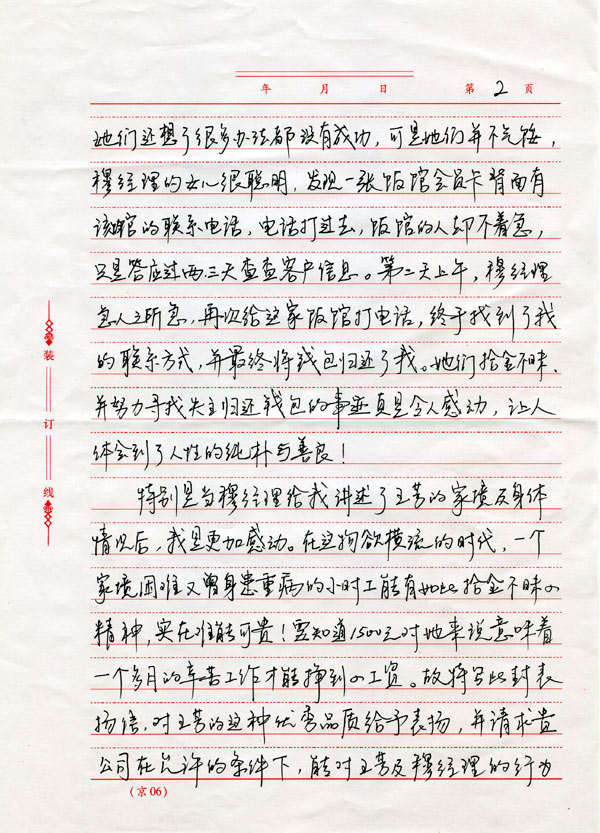 年 月 日 第 2 页
她们还想了很多办法都没有成功，可是她们并不气馁，
穆经理的女儿很聪明，发现一张饭馆会员卡背面有
该馆的联系电话，电话打过去，饭馆的人却不着急，
只是答应过两三天查查客户信息。第二天上午，穆经理
急人之所急，再次给这家饭馆打电话，终于找到了我
的联系方式，并最终将钱包归还了我。她们拾金不昧、
并努力寻找失主归还钱包的事迹真是令人感动，让人
体会到了人性的纯朴与善良！
特别是当穆经理给我讲述了王芳的家境及身体
情况后，我是更加感动。在这物欲横流的时代，一个
家境困难又曾身患重病的小时工能有如此拾金不昧的
精神，实在难能可贵！要知道1500元对她来说意味着
一个多月的辛苦工作才能挣到的工资。故特写此封表
扬信，对王芳的这种优秀品质给予表扬，并请求贵
公司在允许的条件下，能对王芳及穆经理的行为
装
订
线
（京06）